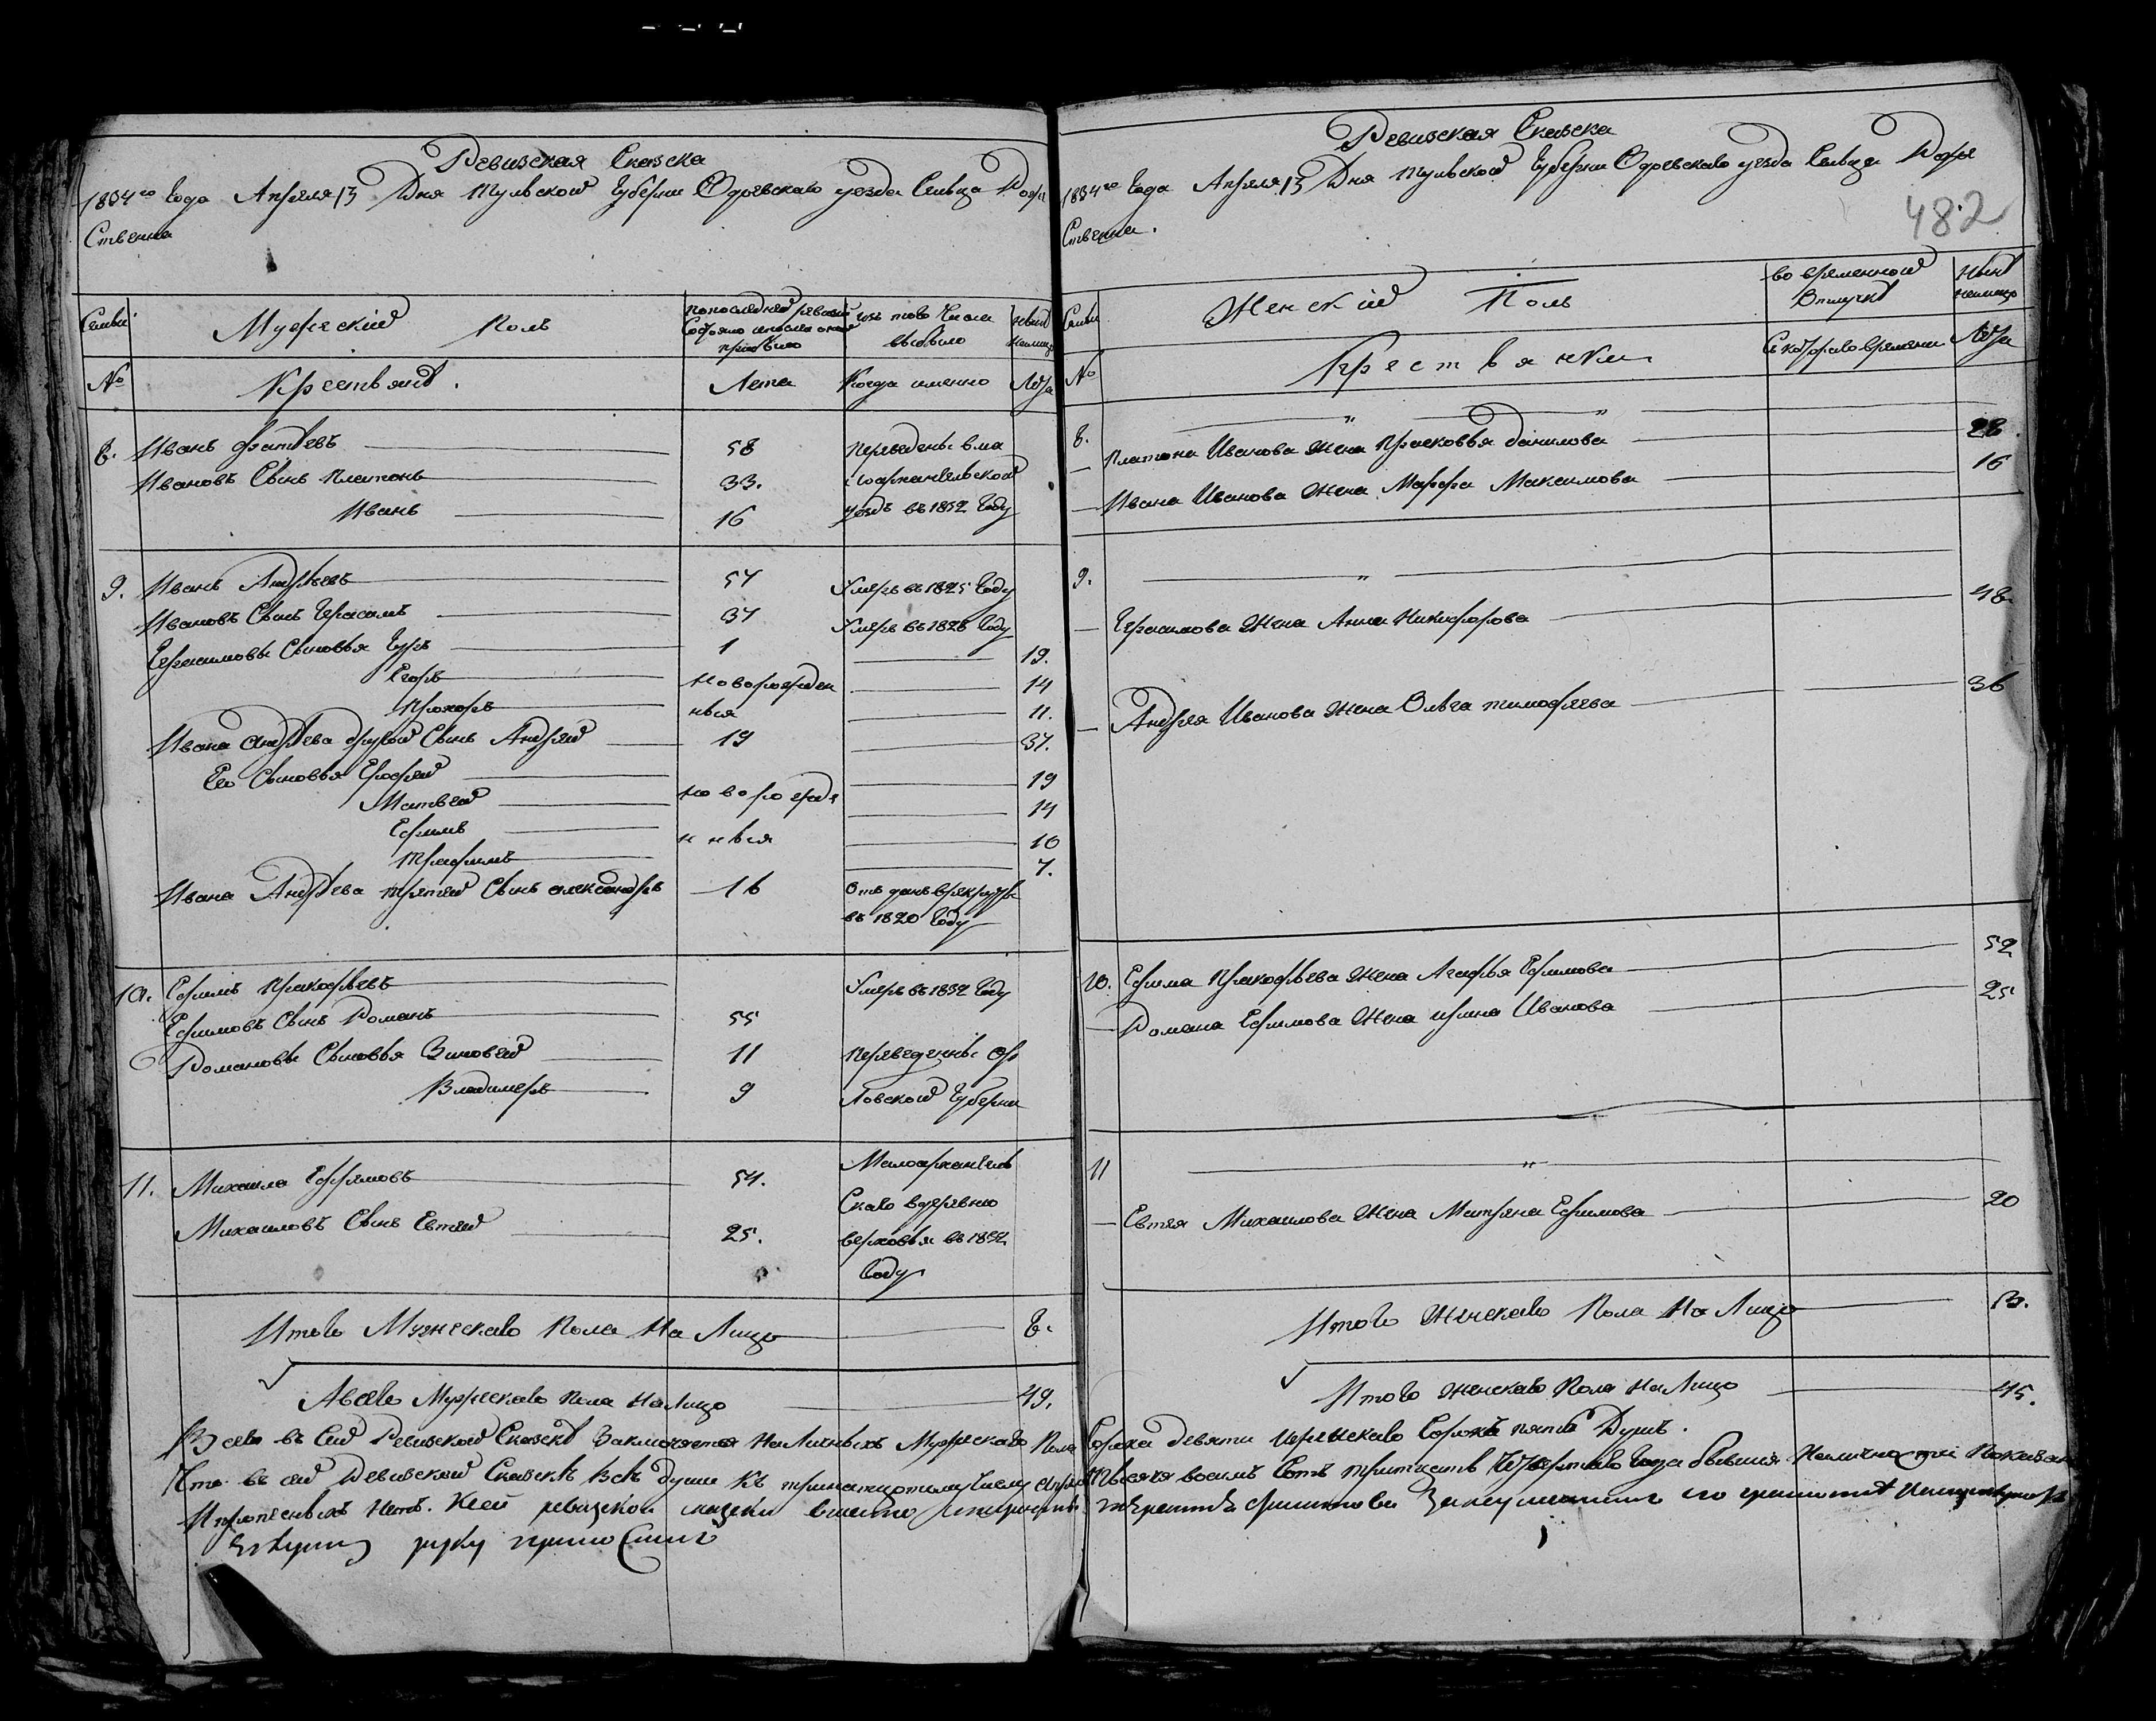 Ревизская Сказска
1834го Года Апреля 13 Дня Тульской Губерни Одоевскаво уезда Сельца Рожде
Ственна
Семьи
Мужеский Полъ
Попоследней ревизии Состояло ипосле оной прибыло
изъ тово Числа выбыло
Ныне Налицо
№
Крестьяне.
Лета
Когда именно
Лета
8. Иванъ Фатеевъ 58 Переведены вма
Ивановъ Сынъ Платонъ 33. лоархангельской
Иванъ 16 уездъ въ 1832 Году
9. Иванъ Андреевъ 54 Умеръ въ 1825 Году
Ивановъ Сынъ Герасимъ 37 Умеръ въ 1828 Году
Герасимовы Сыновья Гуръ 1 19.
Егоръ Новорожден 14
Прохоръ ныя 11.
Ивана Андреева другой Сынъ Андрей 19 37.
Ево Сыновья Ерофей 19
Матвей новорожде 14
Ефимъ нныя 10
Трафимъ 7.
Ивана Андреева третей Сынъ александръ 16 Отданъ врекруты
въ 1820 Году
10. Ефимъ Пракофьевъ Умеръ въ 1832 Году
Ефимовъ Сынъ Романъ 55
Романовы Сыновья Зиновей 11 Переведенны Ор
Владимеръ 9 ловской Губерни
11. Михаила Ефремовъ 54. Малоархангель
Скаво вдеревню
Михаиловъ Сынъ Евтей 25. верховья въ 1832
Году
Итого Мужескаво Пола На Лицо 8.
Авсево Мужескаво Пола На Лицо 49.
Ревизская Сказска
1834го Года Апреля 13 Дня Тульской Губерни Одоевскаво уезда Сельца Рожде
Ственна.
482
Семьи
Женский Полъ
во временной Отлучке
Ныне налицо
№
Крестьянки
Скоторого времени
Лета
8.
Платона Иванова Жена Прасковья данилова 28.
Ивана Иванова Жена Марфа Максимова 16
9.
Герасимова Жена Анна Никифорова 48.
Андрея Иванова Жена Ольга тимофеева 36
10. Ефима Пракофьева Жена Агафья Ефимова 52
Романа Ефимова Жена ирина Иванова 25
11
Евтея Михаилова Жена Матрена Ефимова 20
Итого Женскаво Пола На Лицо
Итого женскаво Пола На Лицо 45.
Всево въ Сей Ревизской Сказске Заключается Наличныхъ Мужескаво Пола Сорокъ девяти иженскаво Сорокъ пять Душъ.
Что въ сей Ревизской Сказске Все души Къ тринатцотому Числу апреля Тысяча восемъ Сотъ тритцать Четвертаво Года бывшия Наличо
Ипрописныхъ нетъ. Ксей ревизской сказки вместо
руку приложилъ